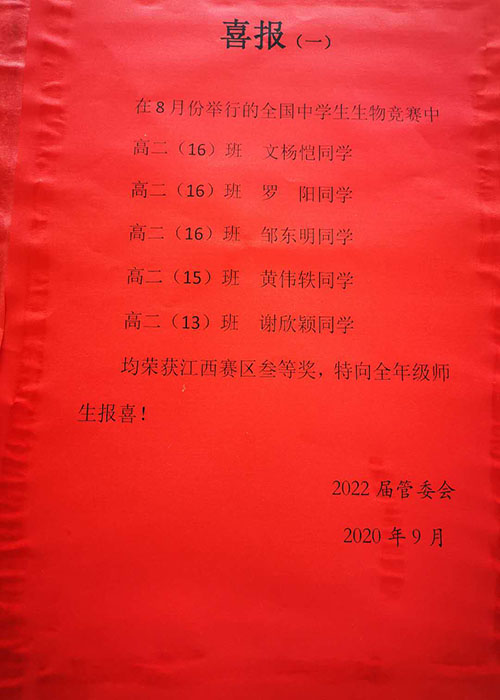 喜报（一）
在 8 月份举行的全国中学生生物竞赛中
高二（16）班 文杨恺同学
高二（16）班 罗 阳同学
高二（16）班 邹东明同学
高二（15）班 黄伟轶同学
高二（13）班 谢欣颖同学
均荣获江西赛区叁等奖，特向全年级师
生报喜！
2022 届管委会
2020 年 9 月